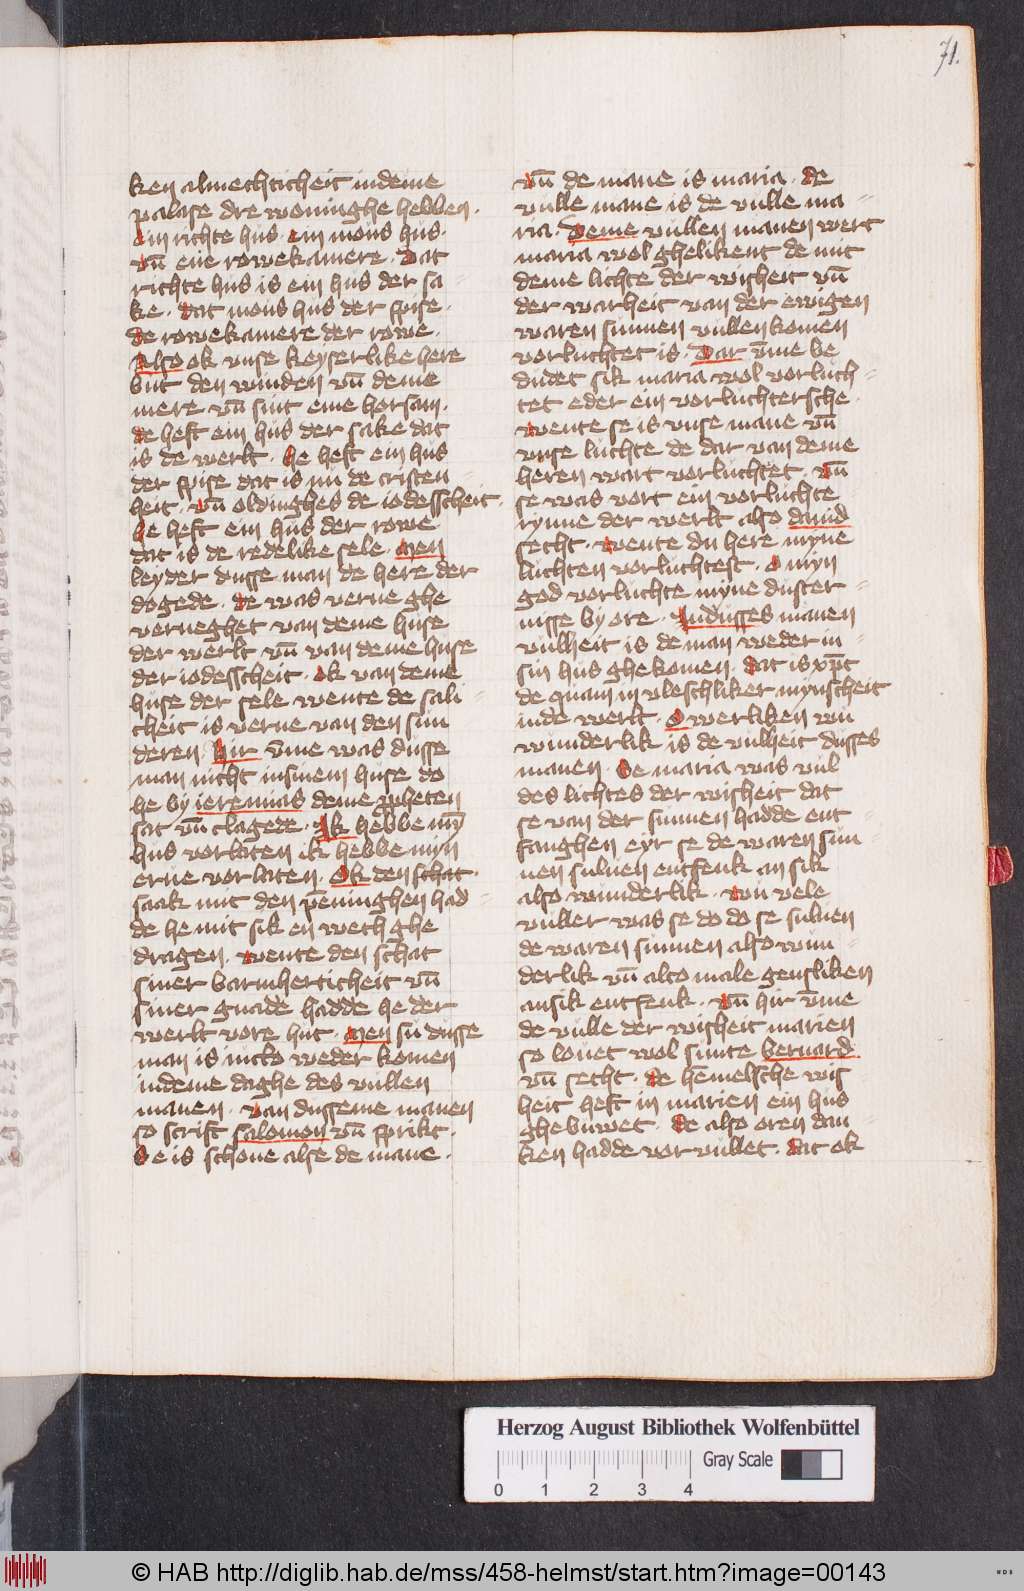 71.
ken almechticheit in deme
palase dre woninghe hebben.
Ein richte hus. ein mous hus.
vn̄ eine rowekamere. Dat
richte hus is ein hus der sa
ke. dat mous hus der spise.
de rowekamere der rowe.
Also ok vnse keyserlike here
but den winden vn̄ deme
mere vn̄ sint eme horsam.
de heft ein hus der sake dat
is de werlt. he heft ein hus
der spise dat is nu de cristen
heit. vn̄ oldinghes de iodesscheit.
he heft ein hus der rowe
dat is de redelike sele. Men
leyder dusse man de here der
dogede. de was verne ghe
verneghet van deme huse
der werlt vn̄ van deme huse
der iodesscheit. ok van deme
huse der sele wente de sali
cheit is verne van den sun
deren. Hir v̄me was dusse
man nicht in sinem huse do
he by ieremias deme ppheten
sat vn̄ clagede. Ik hebbe mȳ
hus vorlaten ik hebbe myn
erue vorlaten. Ok den schat
saak mit den peninghen had
de he mit sik en wech ghe
dragen. wente den schat
siner barmherticheit vn̄
siner gnade hadde he der
werlt vore hut. Men su dusse
man is nicto weder komen
in deme daghe des vullen
manen. van dusseme manen
so scrift salomon vn̄ sprikt.
Se is schone alse de mane.
vn̄ de mane is maria. de
vulle mane is de vulle ma
ria. Deme vullen manen wert
maria wol ghelikent de mit
deme lichte der wisheit vn̄
der warheit van der ewigen
waren sunnen vullenkomen
vorluchtet is. Dar v̄me be
dudet sik maria wol vorluch
tet eder ein vorluchtersche.
wente se is vnse mane vn̄
vnse luchte de dar van deme
heren wart vorluchtet. vn̄
se was vort ein vorluchte
rynne der werlt also dauid
secht. wente du here myne
luchten vorluchtest. O myn
god vorluchte myne duster
nisse by ore. In dusses manen
vullheit is de man weder in
sin hus ghekomen. dat is xp̄t
de quam in vleschliker mynscheit
in de werlt. O werliken wu
wunderlik is de vulheit dusses
manen. Se maria was vul
des lichtes der wisheit dat
se van der sunnen hadde ent
fanghen eyr se de waren sun
nen suluen entfenk an sik
also wunderlik. wu vele
vuller was se do do se suluen
de waren sunnen also wun
derlik vn̄ alto male gensliken
an sik entfenk. vn̄ hir v̄me
de vulle der wisheit marien
so louet wol sunte bernard
vn̄ secht. de hemelsche wis
heit heft in marien ein hus
ghebuwet. de also oren dan
ken hadde vor vullet. dat ok
Herzog August Bibliothek Wolfenbüttel
Gray Scale
0 1 2 3 4
© HAB http://diglib.hab.de/mss/458-helmst/start.htm?image=00143